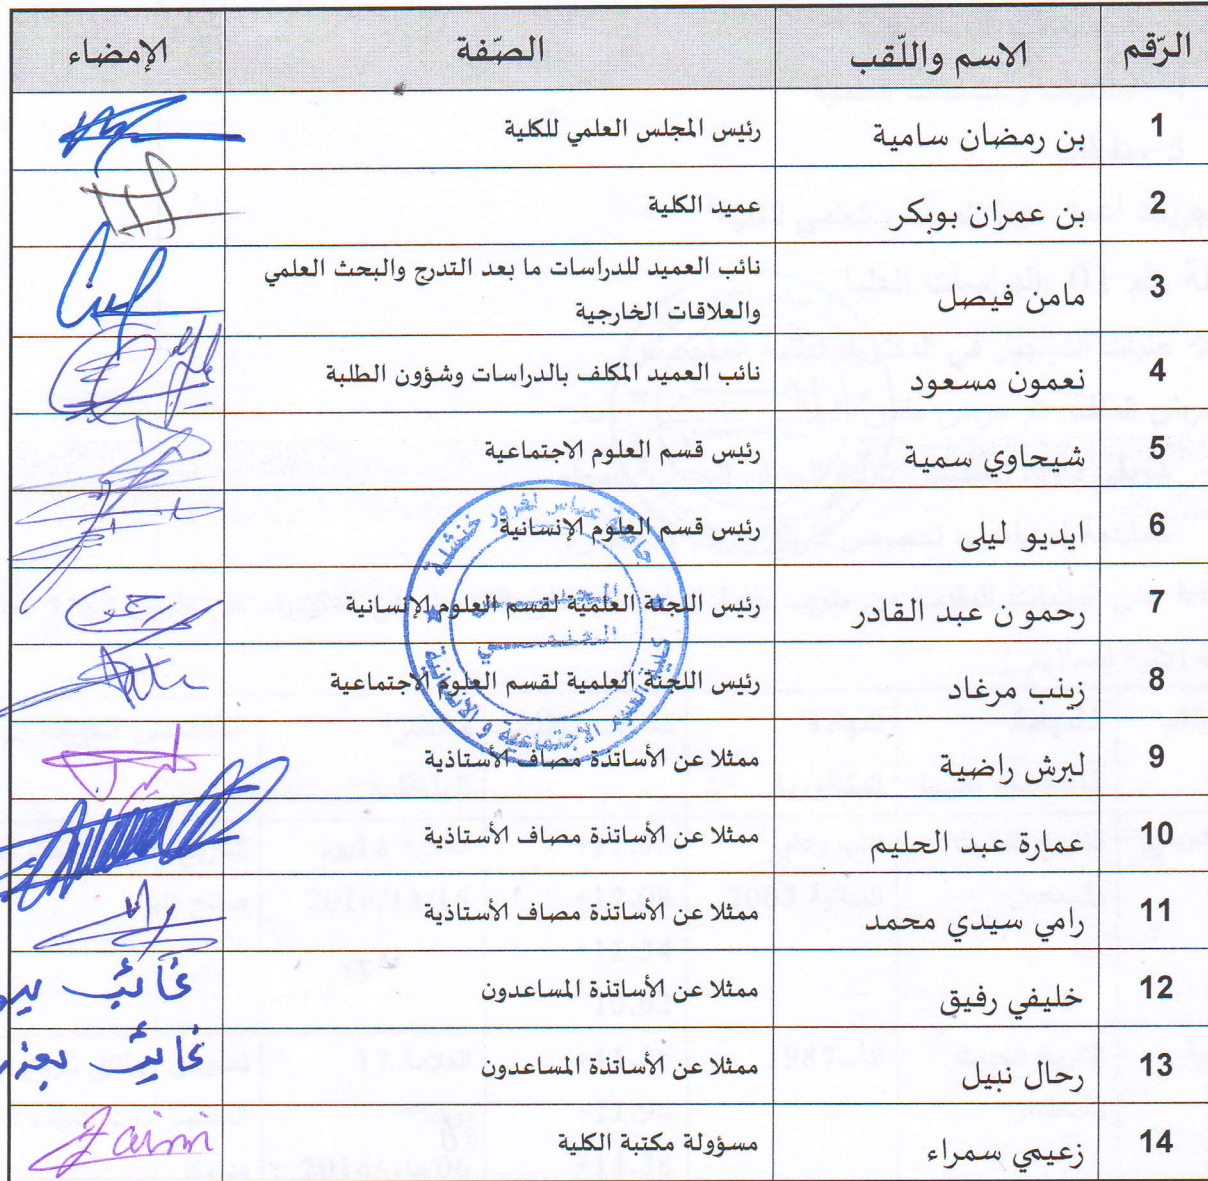 الرّقم الاسم واللّقب الصّفة الإمضاء
1 بن رمضان سامية رئيس المجلس العلمي للكلية
2 بن عمران بوبكر عميد الكلية
3 مامن فيصل نائب العميد للدراسات ما بعد التدرج والبحث العلمي
والعلاقات الخارجية
4 نعمون مسعود نائب العميد المكلف بالدراسات وشؤون الطلبة
5 شيحاوي سمية رئيس قسم العلوم الاجتماعية
6 ايديو ليلى رئيس قسم العلوم الإنسانية
7 رحمون عبد القادر رئيس اللجنة العلمية لقسم العلوم الإنسانية
8 زينب مرغاد رئيس اللجنة العلمية لقسم العلوم الاجتماعية
9 لبرش راضية ممثلا عن الأساتذة مصاف الأستاذية
10 عمارة عبد الحليم ممثلا عن الأساتذة مصاف الأستاذية
11 رامي سيدي محمد ممثلا عن الأساتذة مصاف الأستاذية
12 خليفي رفيق ممثلا عن الأساتذة المساعدون غائب
13 رحال نبيل ممثلا عن الأساتذة المساعدون غائب
14 زعيمي سمراء مسؤولة مكتبة الكلية Zaimi
جامعة عباس لغرور خنشلة
المجلس
العلمي
كلية العلوم الاجتماعية و الإنسانية